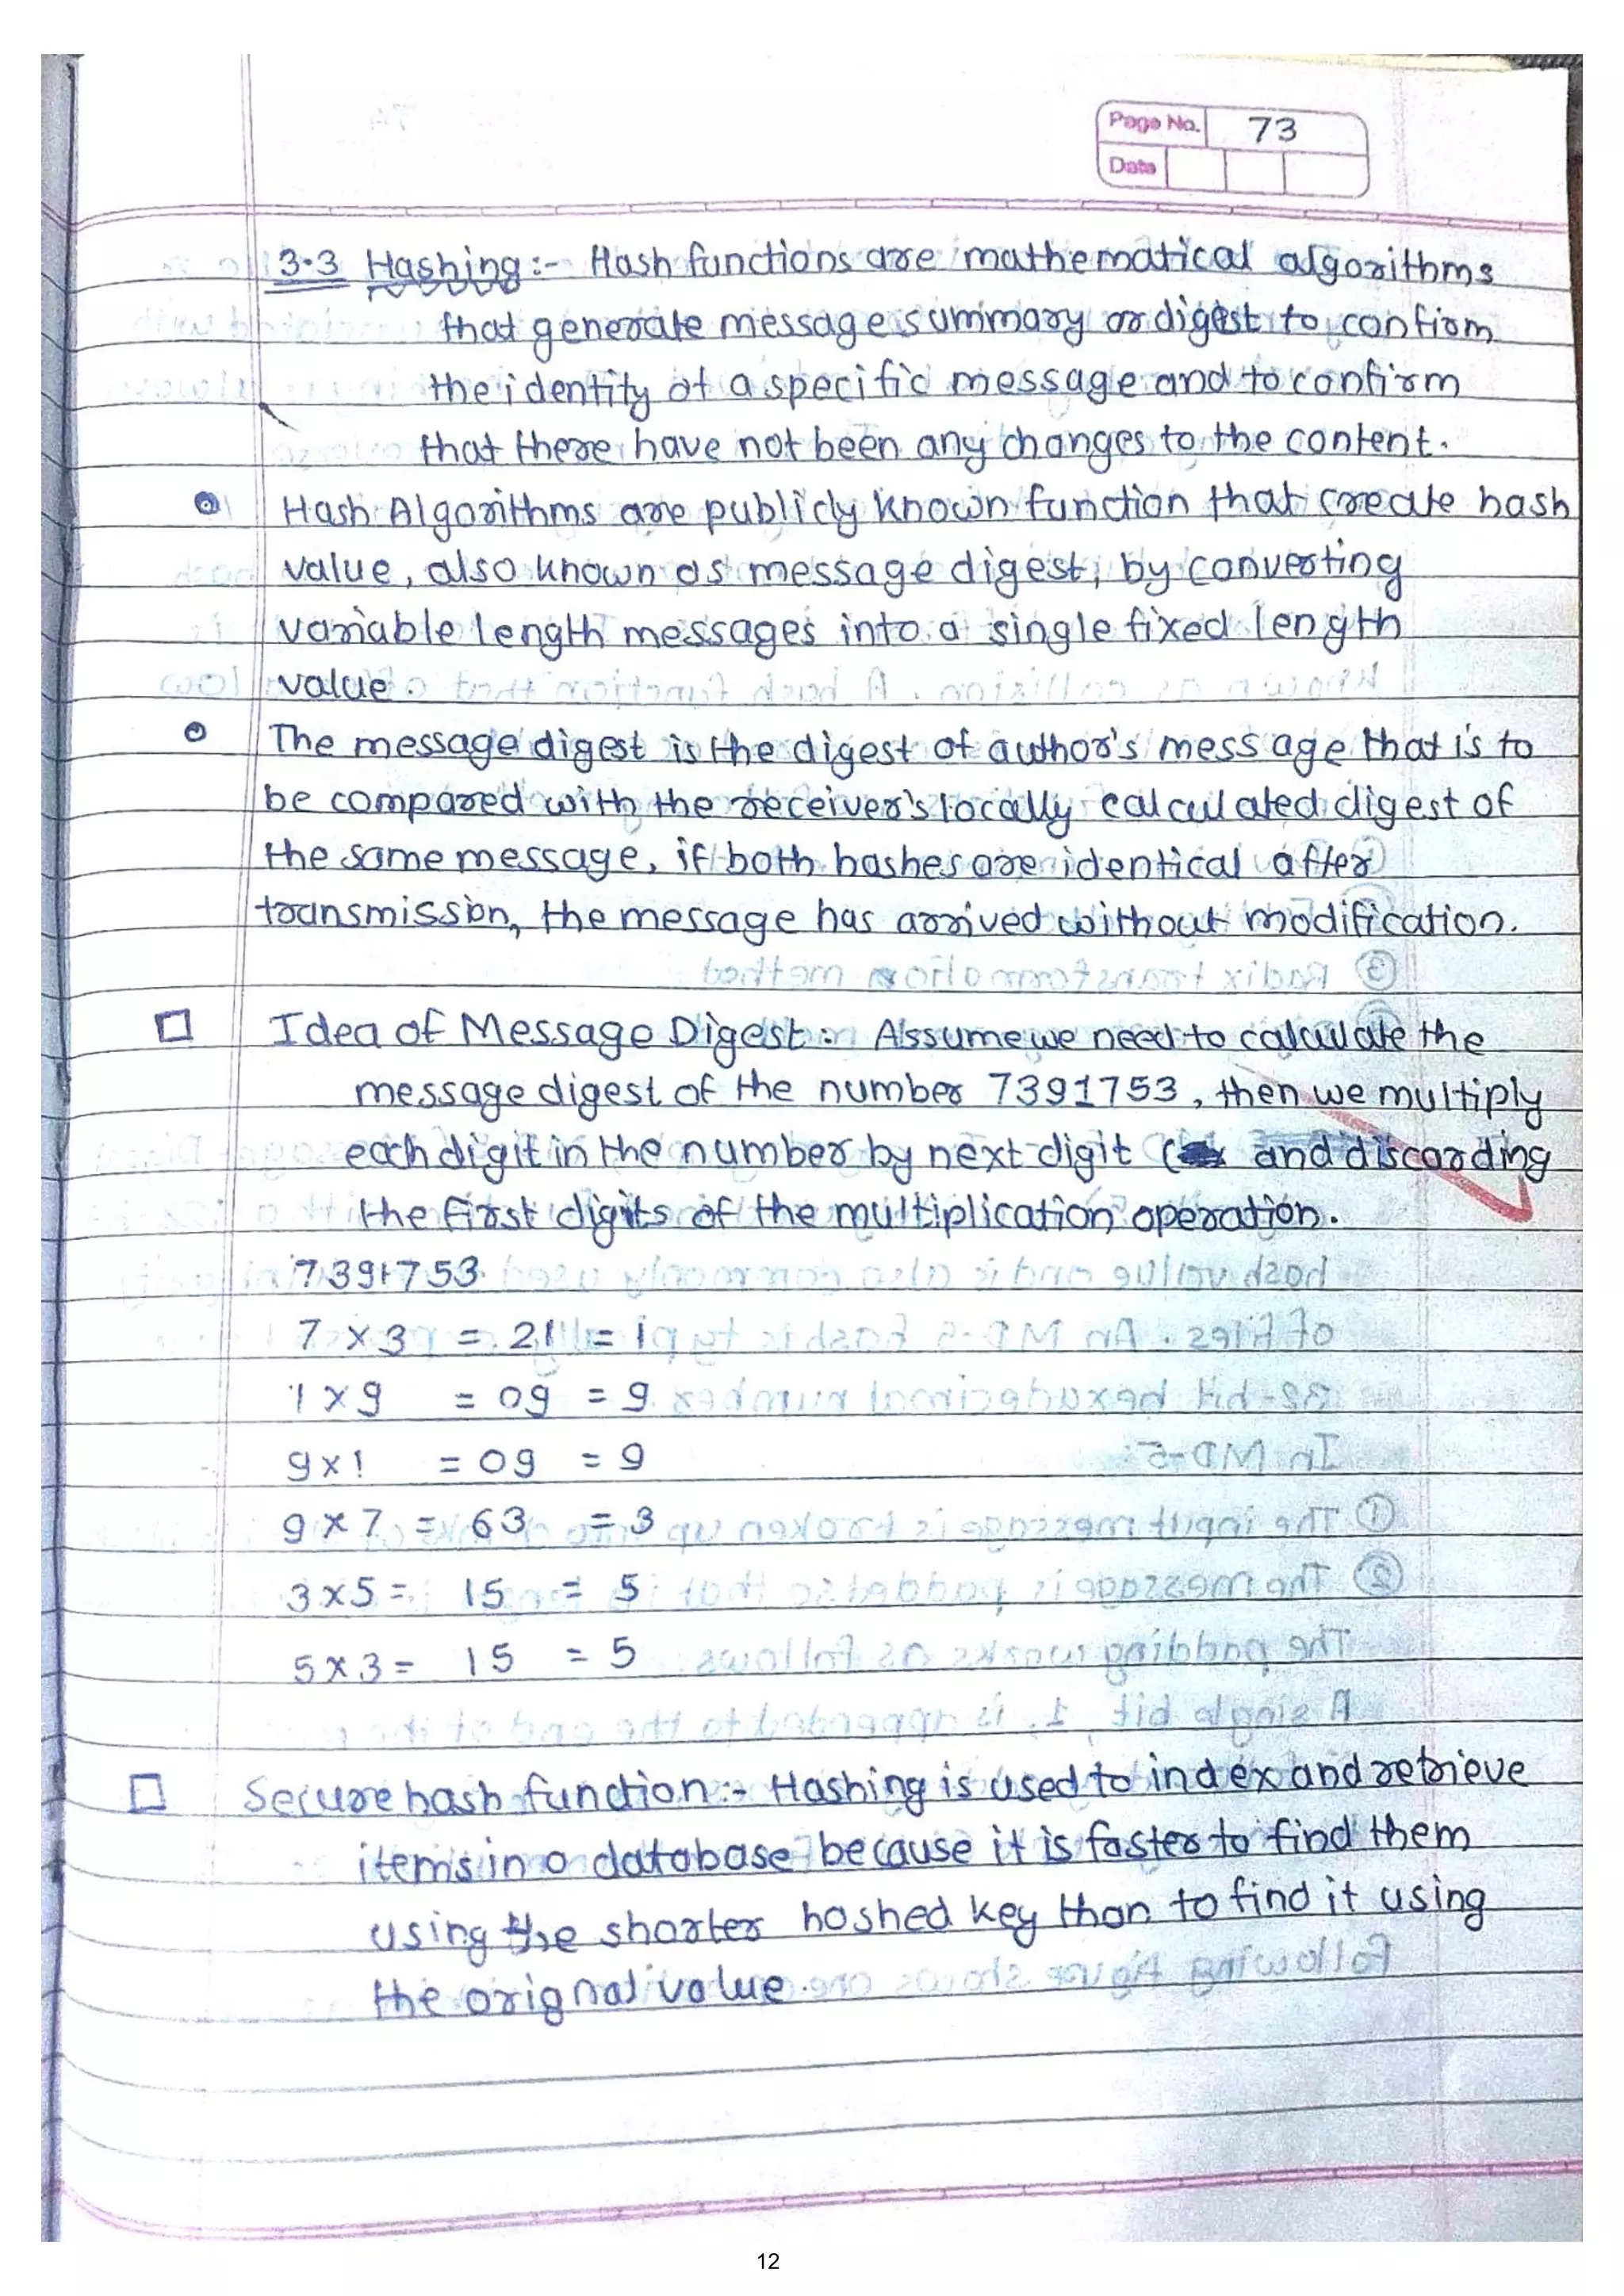 Page No. 73
Date
3.3 Hashing :- Hash functions are mathematical algorithms
that generate message summary or digest to confirm
the identity of a specific message and to confirm
that there have not been any changes to the content.
Hash Algorithms are publicly known function that create hash
value, also known as message digest, by converting
variable length messages into a single fixed length
value.
The message digest is the digest of author's message that is to
be compared with the receiver's locally calculated digest of
the same message, if both hashes are identical after
transmission, the message has arrived without modification.
Idea of Message Digest : Assume we need to calculate the
message digest of the number 7391753, then we multiply
each digit in the number by next digit ( and discarding
the first digits of the multiplication operation.
7391753
7 x 3 = 21 = 1
1 x 9 = 09 = 9
9 x 1 = 09 = 9
9 x 7 = 63 = 3
3 x 5 = 15 = 5
5 x 3 = 15 = 5
Secure hash function :- Hashing is used to index and retrieve
items in a database because it is faster to find them
using the shorter hashed key than to find it using
the orignal value.
12